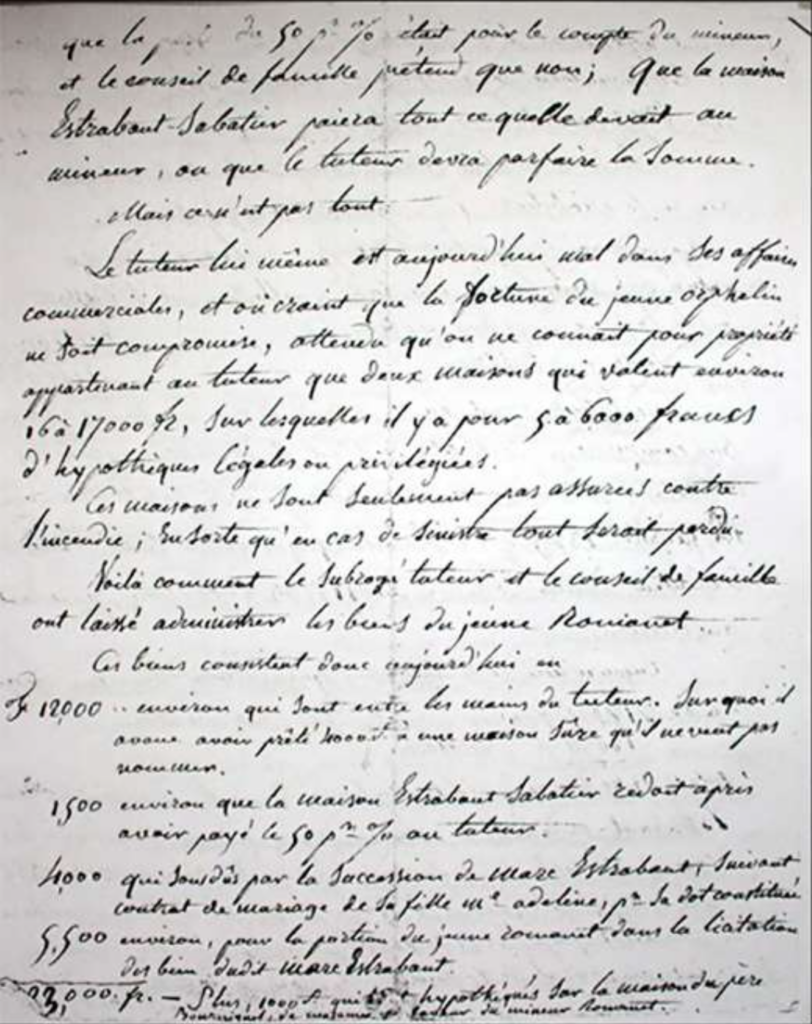 que la du 50 pr % était pour le compte du mineur,
et le conseil de famille prétend que non; Que la maison
Estrabaut-Sabatier paiera tout ce quelle devait au
mineur, ou que le tuteur devra parfaire la Somme.
Mais ce n'est pas tout.
Le tuteur lui même est aujourd'hui mal dans ses affaires
commerciales, et on craint que la fortune du jeune orphelin
ne soit compromise, attendu qu'on ne connait pour propriété
appartenant au tuteur que deux maisons qui valent environ
16 à 17000 fr, sur lesquelles il y a pour 5 à 6000 francs
d'hypothèques légales ou privilégiées.
Ces maisons ne sont seulement pas assurées contre
l'incendie; Ensorte qu'en cas de sinistre tout serait perdu.
Voilà comment le Subrogé tuteur et le conseil de famille
ont laissé administrer les biens du jeune Romanet
Ces biens consistent donc aujourd'hui en
F 12,000 environ qui sont entre les mains du tuteur. Sur quoi il
avoue avoir prêté 4000 f à une maison sûre qu'il ne veut pas
nommer.
1,500 environ que la maison Estrabaut Sabatier redoit après
avoir payé le 50 pr % au tuteur.
4,000 qui sont dûs par la succession de Marc Estrabaut, suivant
contrat de mariage de sa fille me adeline, pr sa dot constituée
5,500 environ, pour la portion du jeune romanet dans la licitation
des bien dudit Marc Estrabaut.
23,000. fr. — Plus, 1000 f qui hypothéqués sur la maison du père
de en faveur du mineur Romanet.